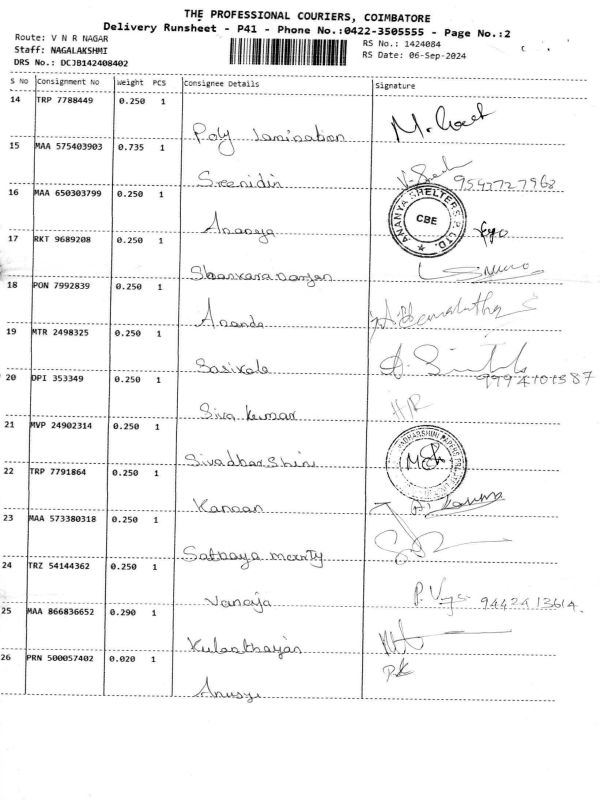 THE PROFESSIONAL COURIERS, COIMBATORE
Delivery Runsheet - P41 - Phone No.:0422-3505555 - Page No.:2
Route: V N R NAGAR
RS No.: 1424084
Staff: NAGALAKSHMI
RS Date: 06-Sep-2024
DRS No.: DCJB142408402
S No Consignment No Weight PCS Consignee Details Signature
14 TRP 7788449 0.250 1
Poly lamination
15 MAA 575403903 0.735 1
Sreenidin
16 MAA 650303799 0.250 1
ANANYA SHELTERS P. LTD.
CBE
Ananya
17 RKT 9689208 0.250 1
18 PON 7992839 0.250 1
Ananda
19 MTR 2498325 0.250 1
Sasikala
20 DPI 353349 0.250 1
Siva kumar
21 MVP 24902314 0.250 1
Sivadharshini
22 TRP 7791864 0.250 1
Kannan
23 MAA 573380318 0.250 1
24 TRZ 54144362 0.250 1
Vanaja
9442413614.
25 MAA 866836652 0.290 1
26 PRN 500057402 0.020 1
P.K